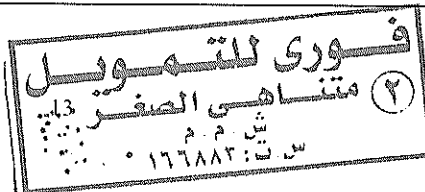 فورى للتمويل
متناهى الصغر ٢
ش . م . م
س . ت : ١٦٦٨٨٢